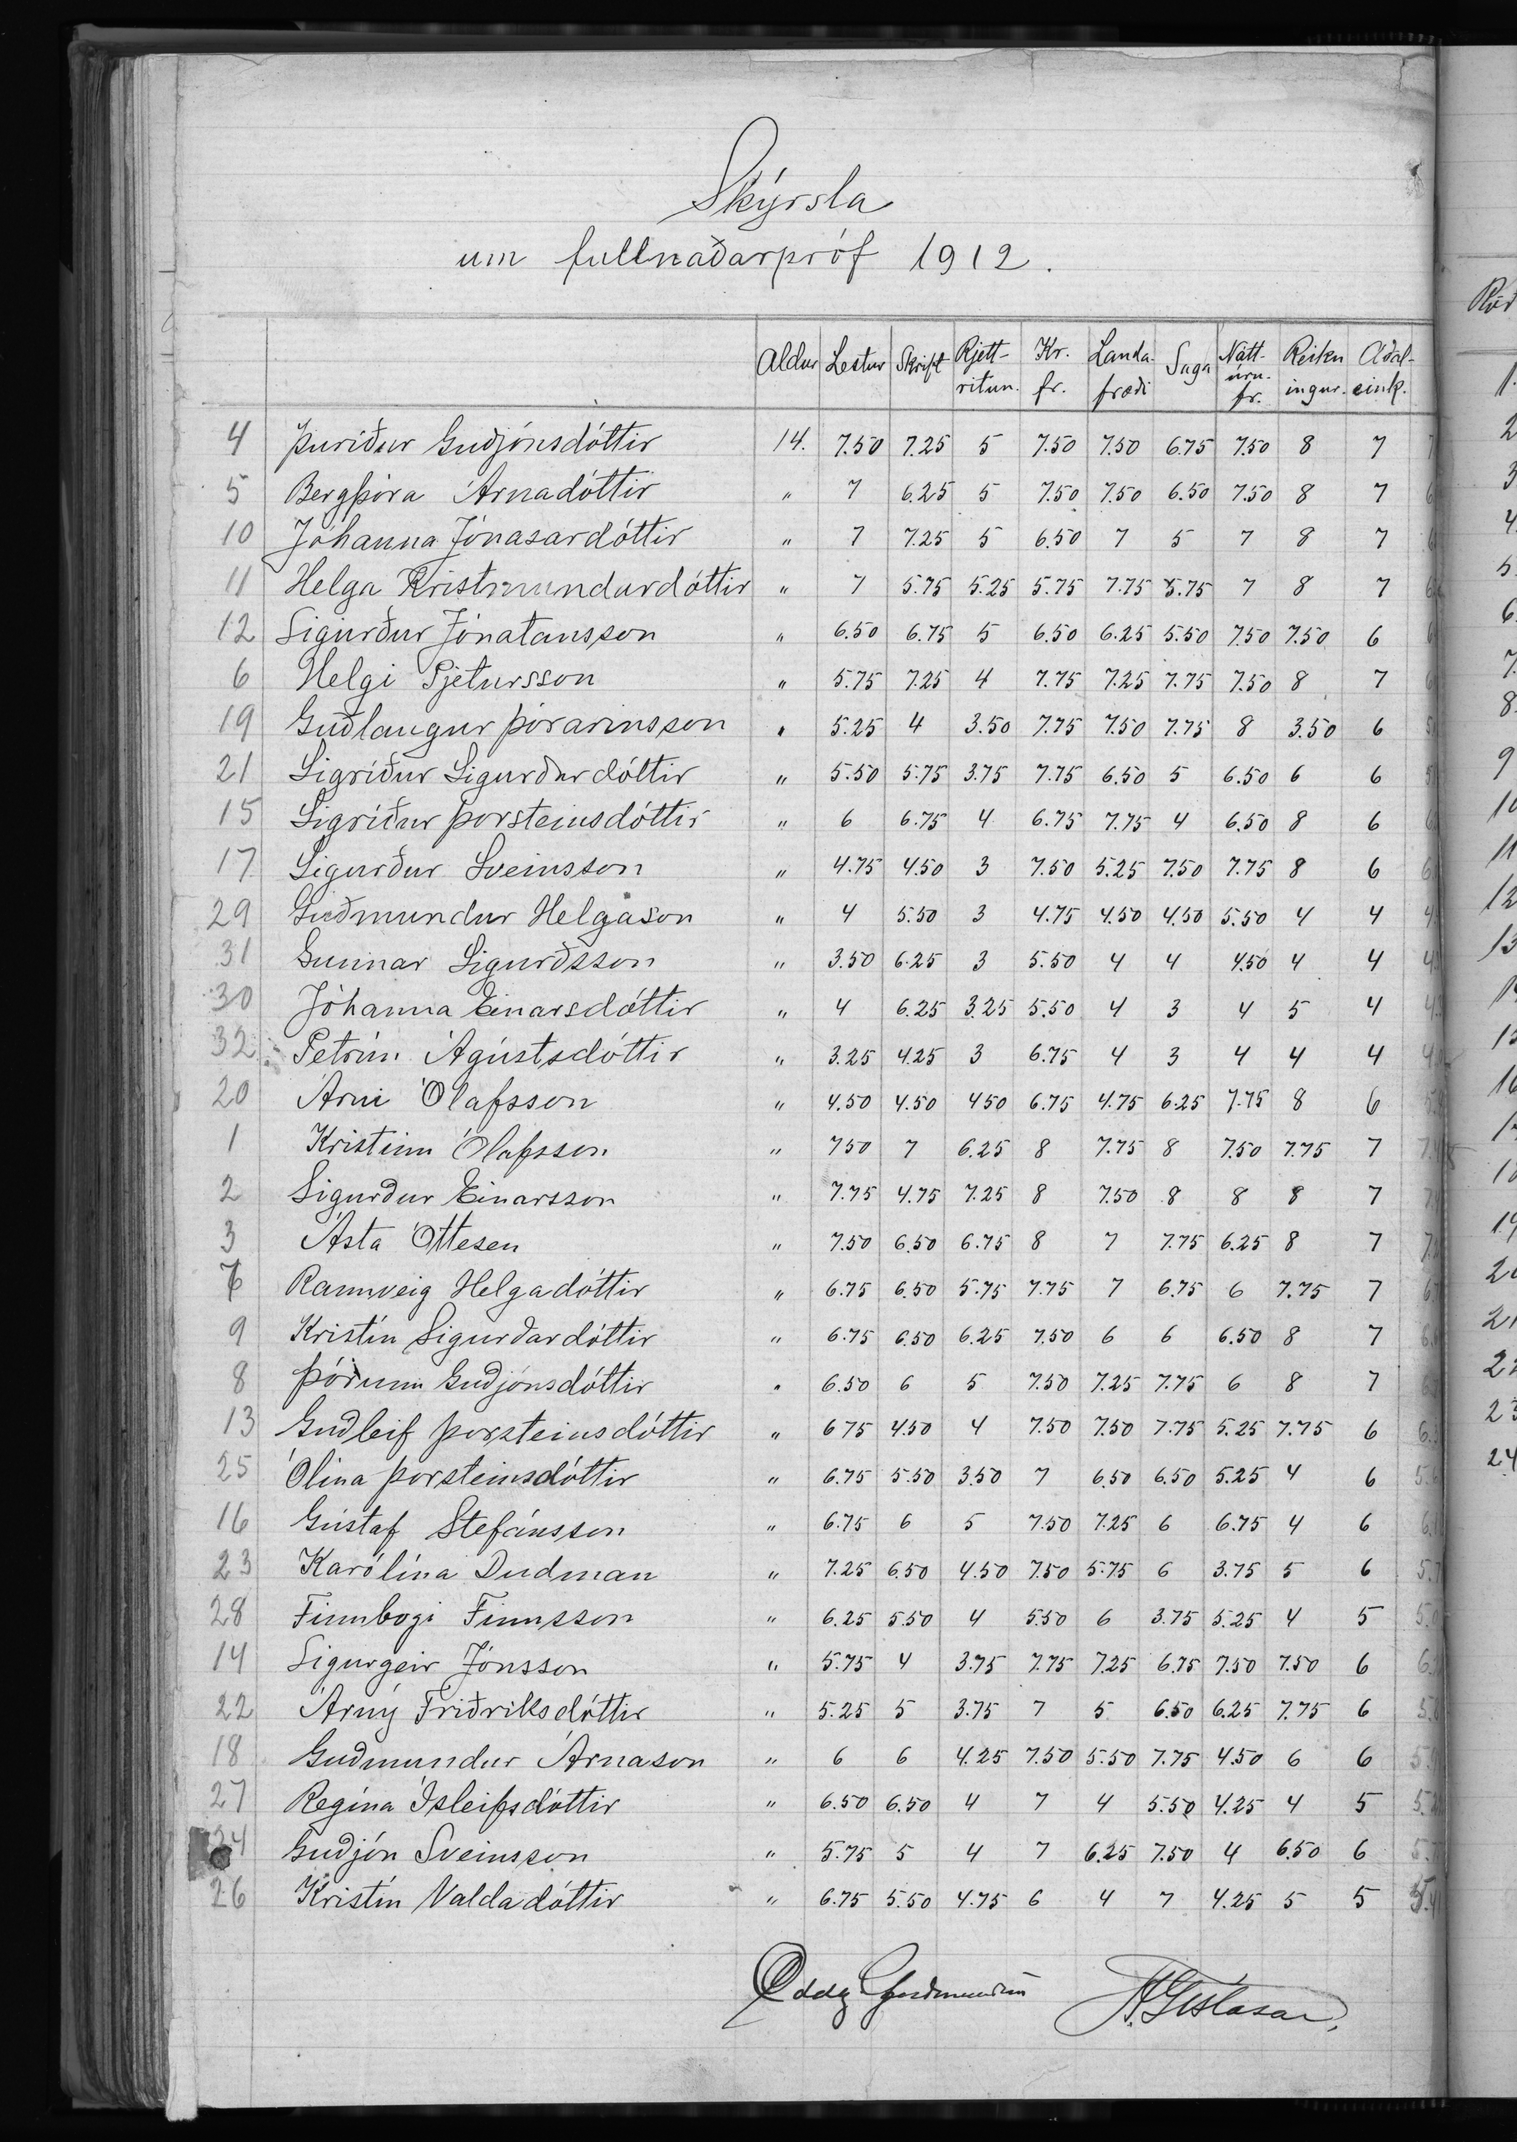 Skýrsla
um fullnaðarpróf 1912.
Aldur Lestur Skrift Rjett-ritun. Kr. fr. Landa-fræði Saga Nátt-úru-fr. Reikn ingur. Aðal-eink.
4 Þuríður Guðjónsdóttir 14. 7.50 7.25 5 7.50 7.50 6.75 7.50 8 7
5 Bergþóra Árnadóttir " 7 6.25 5 7.50 7.50 6.50 7.50 8 7
10 Jóhanna Jónasardóttir " 7 7.25 5 6.50 7 5 7 8 7
11 Helga Kristmundardóttir " 7 5.75 5.25 5.75 7.75 5.75 7 8 7
12 Sigurður Jónatansson " 6.50 6.75 5 6.50 6.25 5.50 7.50 7.50 6
6 Helgi Pjetursson " 5.75 7.25 4 7.75 7.25 7.75 7.50 8 7
19 Guðlaugur Þórarinsson " 5.25 4 3.50 7.75 7.50 7.75 8 3.50 6
21 Sigríður Sigurðardóttir " 5.50 5.75 3.75 7.75 6.50 5 6.50 6 6
15 Sigríður Þorsteinsdóttir " 6 6.75 4 6.75 7.75 4 6.50 8 6
17 Sigurður Sveinsson " 4.75 4.50 3 7.50 5.25 7.50 7.75 8 6
29 Guðmundur Helgason " 4 5.50 3 4.75 4.50 4.50 5.50 4 4
31 Gunnar Sigurðsson " 3.50 6.25 3 5.50 4 4 4.50 4 4
30 Jóhanna Einarsdóttir " 4 6.25 3.25 5.50 4 3 4 5 4
32 Petrún Ágústsdóttir " 3.25 4.25 3 6.75 4 3 4 4 4
20 Árni Ólafsson " 4.50 4.50 450 6.75 4.75 6.25 7.75 8 6
1 Kristinn Ólafsson " 750 7 6.25 8 7.75 8 7.50 7.75 7
2 Sigurður Einarsson " 7.75 4.75 7.25 8 7.50 8 8 8 7
3 Ásta Ottesen " 7.50 6.50 6.75 8 7 7.75 6.25 8 7
7 Rannveig Helgadóttir " 6.75 6.50 5.75 7.75 7 6.75 6 7.75 7
9 Kristín Sigurðardóttir " 6.75 6.50 6.25 7.50 6 6 6.50 8 7
8 Þórunn Guðjónsdóttir " 6.50 6 5 7.50 7.25 7.75 6 8 7
13 Guðleif Þorsteinsdóttir " 675 4.50 4 7.50 7.50 7.75 5.25 7.75 6
25 Ólína Þorsteinsdóttir " 6.75 5.50 3.50 7 6.50 6.50 5.25 4 6
16 Gústaf Stefánsson " 6.75 6 5 7.50 7.25 6 6.75 4 6
23 Karólína Dudman " 7.25 6.50 4.50 7.50 5.75 6 3.75 5 6
28 Finnbogi Finnsson " 6.25 5.50 4 5.50 6 3.75 5.25 4 5
14 Sigurgeir Jónsson " 5.75 4 3.75 7.75 7.25 6.75 7.50 7.50 6
22 Árný Friðriksdóttir " 5.25 5 3.75 7 5 6.50 6.25 7.75 6
18 Guðmundur Árnason " 6 6 4.25 7.50 5.50 7.75 4.50 6 6
27 Regína Ísleifsdóttir " 6.50 6.50 4 7 4 5.50 4.25 4 5
24 Guðjón Sveinsson " 5.75 5 4 7 6.25 7.50 4 6.50 6
26 Kristín Valdadóttir " 6.75 5.50 4.75 6 4 7 4.25 5 5
Oddg Guðmundss